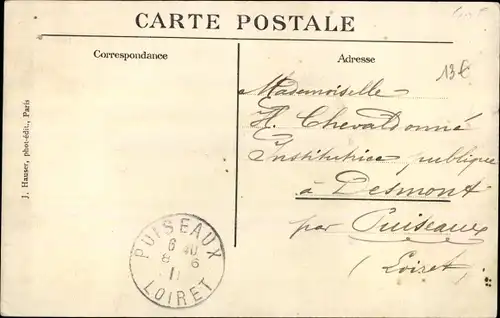 CARTE POSTALE
Correspondance
Adresse
13€
Mademoiselle
H. Chevaldonné
Institutrice publique
à Desmont
par Puiseaux
(Loiret)
J. Hauser, phot-édit., Paris
PUISEAUX
6
8 6
11
LOIRET